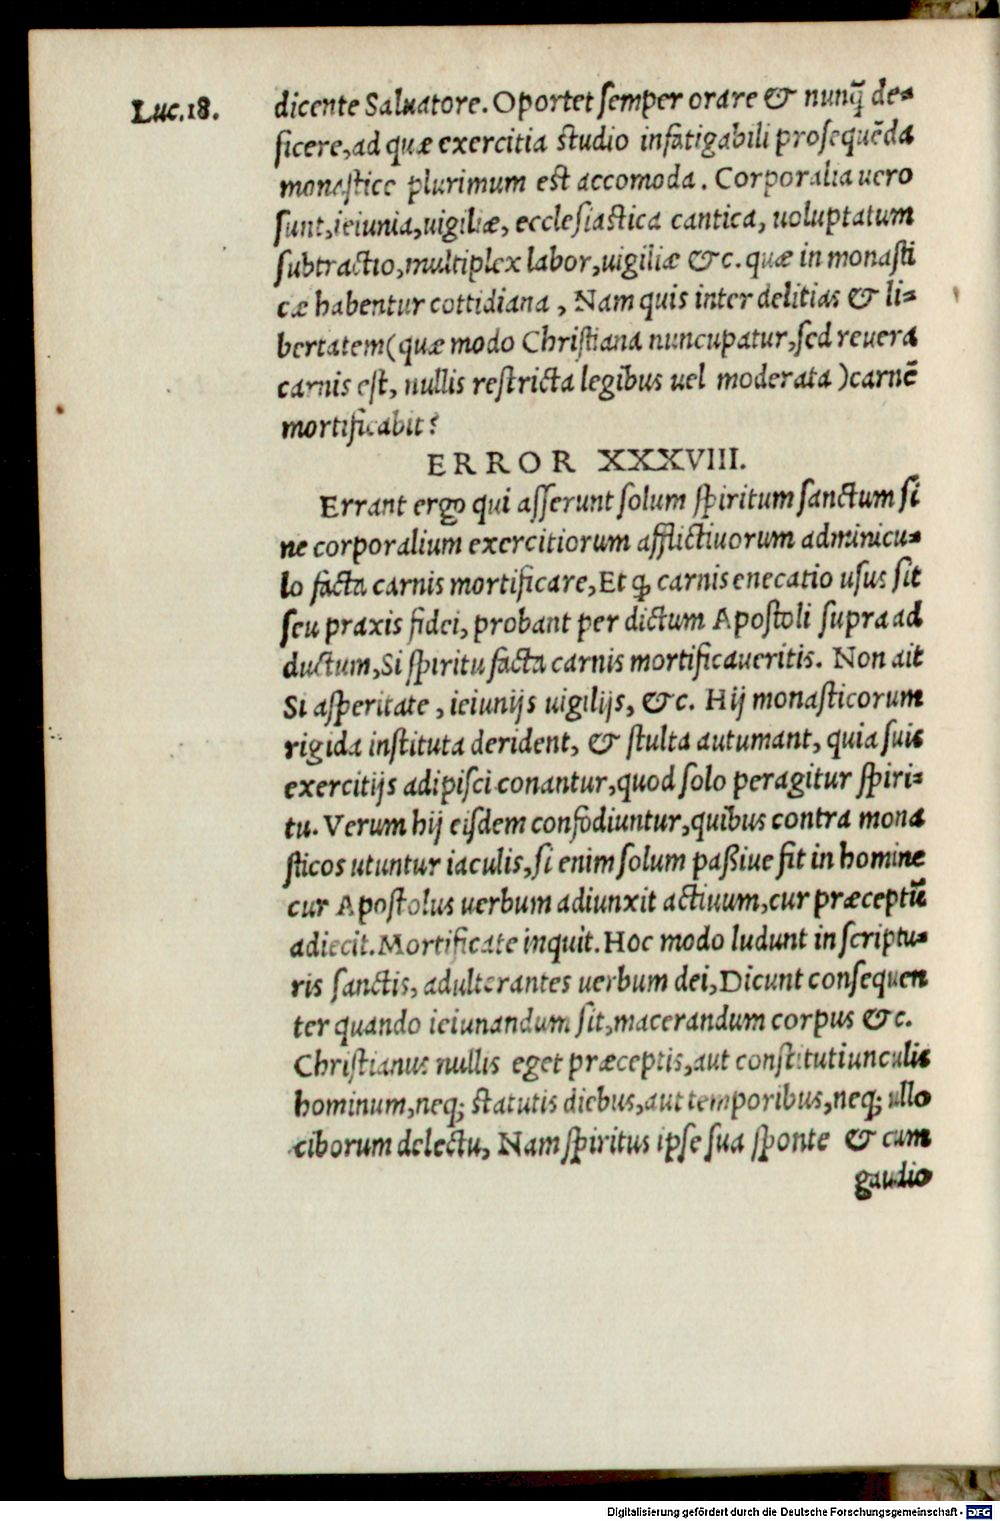 Luc.18.
dicente Saluatore. Oportet semper orare & nunq̃ de-
ficere, ad quæ exercitia studio infatigabili prosequēda
monastice plurimum est accomoda. Corporalia uero
sunt, ieiunia, uigiliæ, ecclesiastica cantica, uoluptatum
subtractio, multiplex labor, uigiliæ &c. quæ in monasti
cæ habentur cottidiana, Nam quis inter delitias & li-
bertatem (quæ modo Christiana nuncupatur, sed reuera
carnis est, nullis restricta legibus uel moderata) carnē
mortificabit?
ERROR XXXVIII.
Errant ergo qui asserunt solum spiritum sanctum si
ne corporalium exercitiorum afflictiuorum adminicu-
lo facta carnis mortificare, Et ꝙ carnis enecatio usus sit
seu praxis fidei, probant per dictum Apostoli supra ad
ductum, Si spiritu facta carnis mortificaueritis. Non ait
Si asperitate, ieiunijs uigilijs, &c. Hij monasticorum
rigida instituta derident, & stulta autumant, quia suis
exercitijs adipisci conantur, quod solo peragitur spiri-
tu. Verum hij eisdem confodiuntur, quibus contra mona
sticos utuntur iaculis, si enim solum paßiue fit in homine
cur Apostolus uerbum adiunxit actiuum, cur præceptũ
adiecit. Mortificate inquit. Hoc modo ludunt in scriptu-
ris sanctis, adulterantes uerbum dei, Dicunt consequen
ter quando ieiunandum sit, macerandum corpus &c.
Christianus nullis eget præceptis, aut constitutiunculis
hominum, neq; statutis diebus, aut temporibus, neq; ullo
ciborum delectu, Nam spiritus ipse sua sponte & cum
gaudio
Digitalisierung gefördert durch die Deutsche Forschungsgemeinschaft - DFG